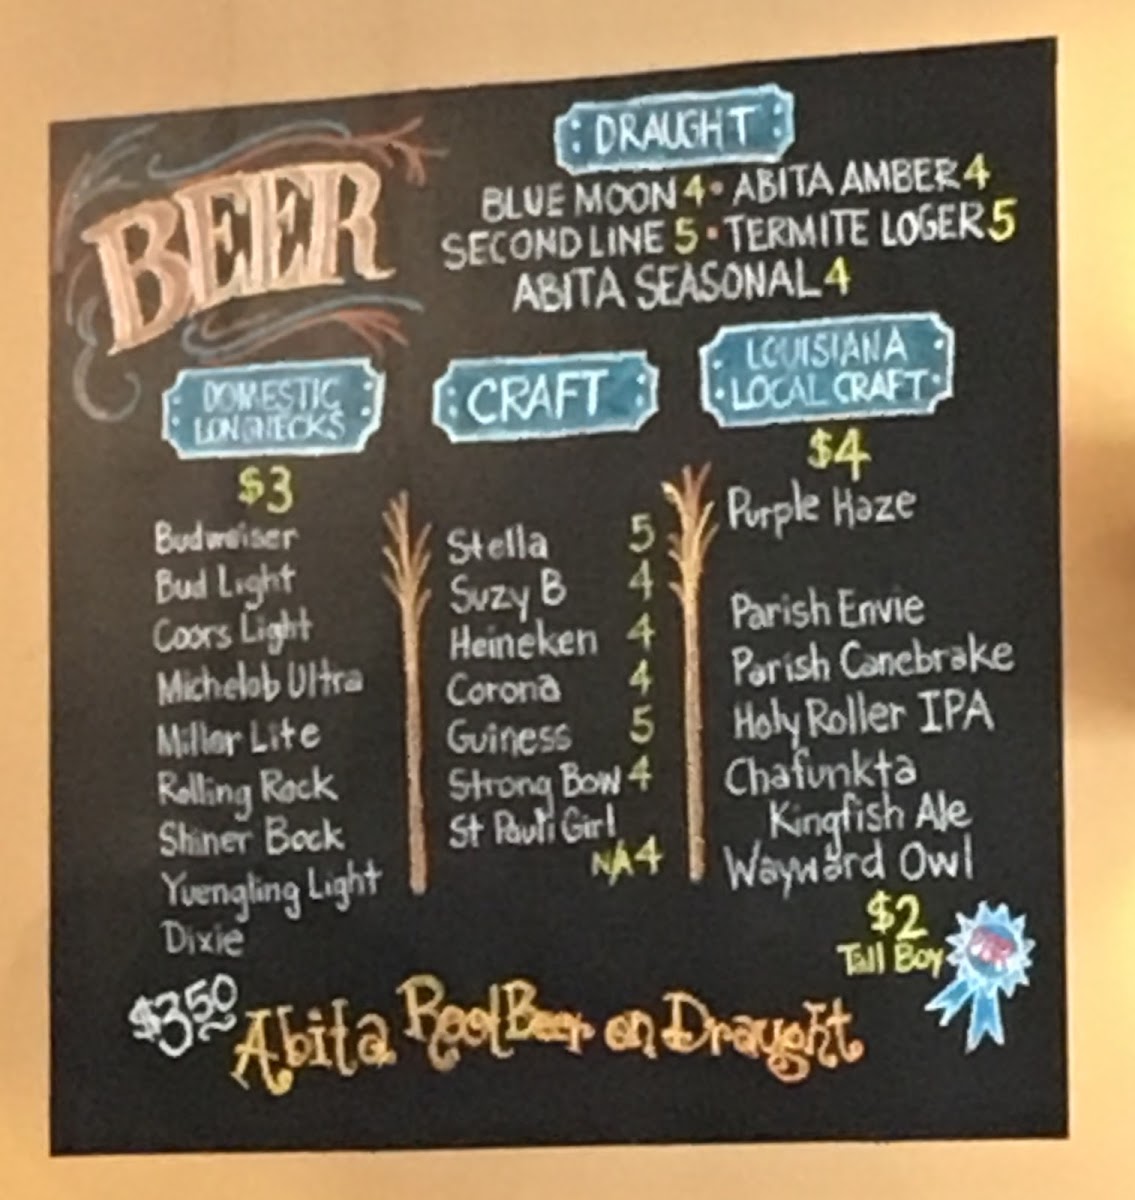 BEER
DRAUGHT
BLUE MOON 4 • ABITA AMBER 4
SECOND LINE 5 • TERMITE LOGER 5
ABITA SEASONAL 4
DOMESTIC
LONGNECKS
$3
Budweiser
Bud Light
Coors Light
Michelob Ultra
Miller Lite
Rolling Rock
Shiner Bock
Yuengling Light
Dixie
CRAFT
Stella 5
Suzy B 4
Heineken 4
Corona 4
Guiness 5
Strong Bow 4
St Pauli Girl
NA 4
LOUISIANA
LOCAL CRAFT
$4
Purple Haze
Parish Envie
Parish Canebrake
Holy Roller IPA
Chafunkta
Kingfish Ale
Wayward Owl
$2
Tall Boy
PBR
$3.50 Abita Root Beer on Draught